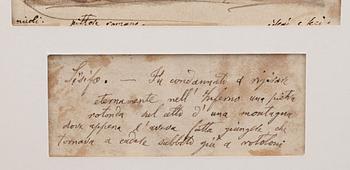 nuoli. vittore romano.
Sisifo. — Fu condannato a rizzare
eternamente nell'Inferno una pietra
rotonda sul alto d'una montagna
dove appena l'aveva fatta giungete che
tornava a cadere subbito giù a rotoloni